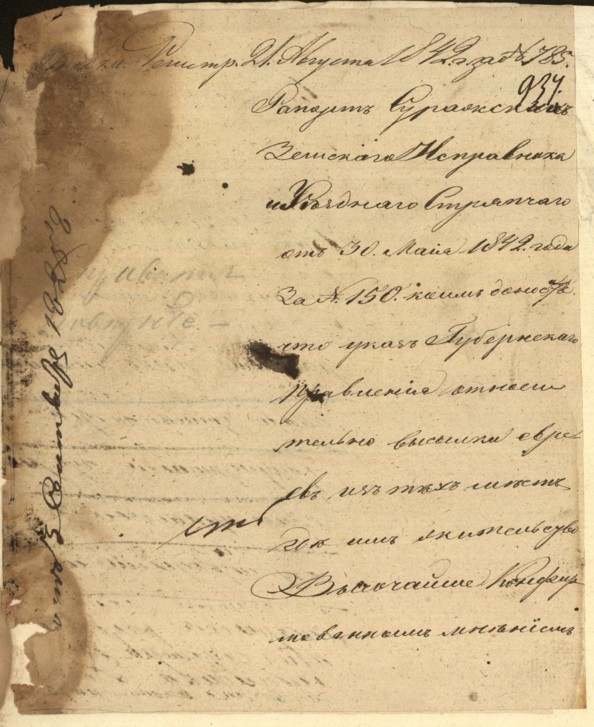 Регистр. 21. Августа 1842. г. за № 785.
937
Рапортъ Суражскихъ
Земскаго Исправника
и Уѣзднаго Стряпчаго
отъ 30. Маия 1842. года
За № 150. коимъ доносятъ
что указъ Губернскаго
Правления относи
тельно высылки евре
евъ изъ тѣхъ мѣстъ
где имъ жительство
Высочайше Конфир
мованнымъ мнѣниемъ